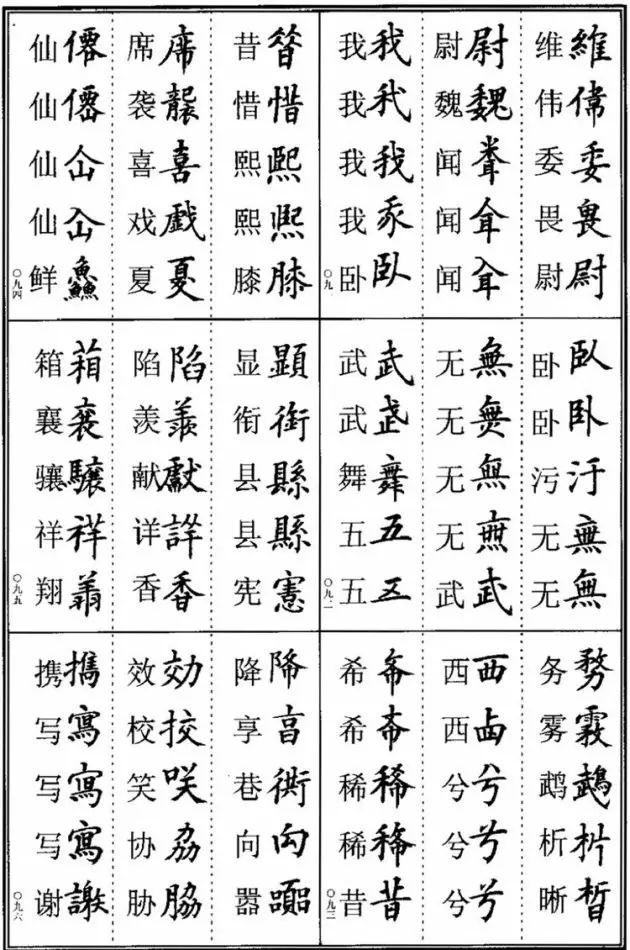 维維 伟偉 委委 畏畏 尉尉
尉尉 魏魏 闻 闻 闻
我我 我我 我我 我 卧臥
〇九一
卧臥 卧卧 污汙 无無 无無
无無 无無 无無 无無 武武
武武 武武 舞舞 五五 五五
〇九二
务務 雾霧 鹉鵡 析析 晰晳
西西 西卥 兮兮 兮兮 兮兮
希希 希希 稀稀 稀稀 昔昔
〇九三
昔㫺 惜惜 熙熙 熙熙 膝膝
席席 袭襲 喜喜 戏戲 夏夏
仙僊 仙僊 仙仚 仙仚 鲜鱻
〇九四
显顯 衔銜 县縣 县縣 宪憲
陷陷 羡羨 献獻 详詳 香香
箱箱 襄襄 骧驤 祥祥 翔翔
〇九五
降降 享亯 巷衖 向向 嚣囂
效効 校挍 笑咲 协劦 胁脇
携攜 写寫 写寫 写寫 谢謝
〇九六